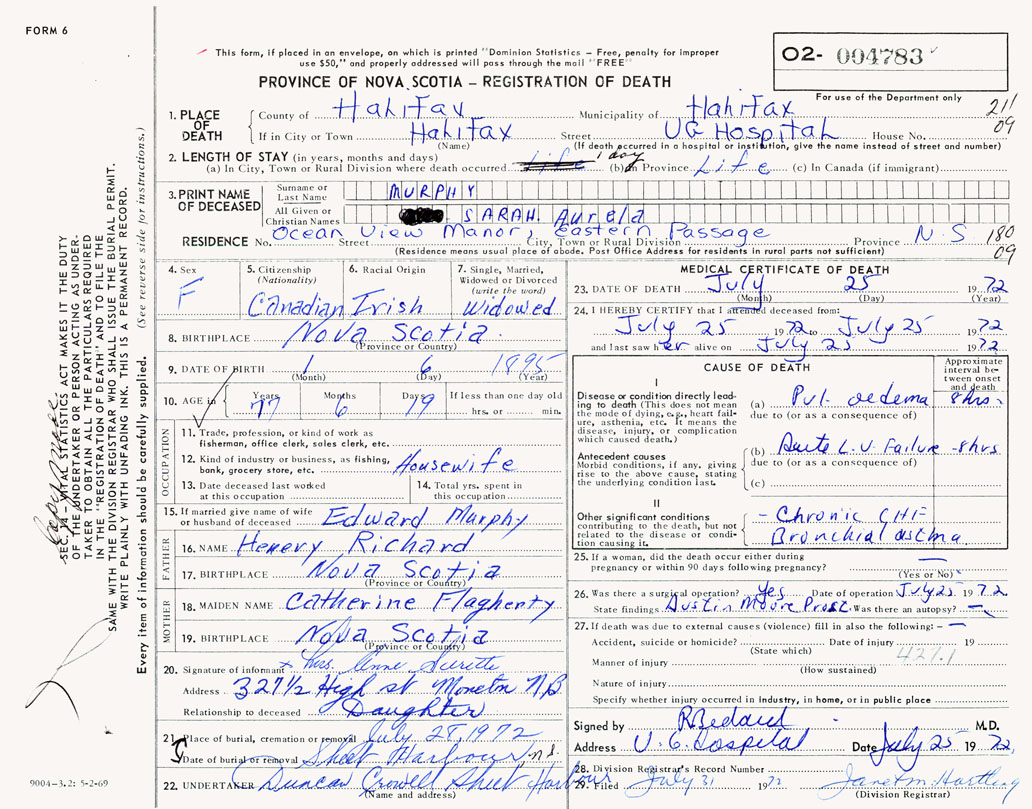 FORM 6
This form, if placed in an envelope, on which is printed "Dominion Statistics – Free, penalty for improper
use $50," and properly addressed will pass through the mail "FREE"
O2- 004783
PROVINCE OF NOVA SCOTIA – REGISTRATION OF DEATH
For use of the Department only
211
09
1. PLACE OF DEATH
County of Halifax Municipality of Halifax
If in City or Town Halifax Street VG Hospital House No.
(Name) (If death occurred in a hospital or institution, give the name instead of street and number)
2. LENGTH OF STAY (in years, months and days)
(a) In City, Town or Rural Division where death occurred 1 day (b) in Province Life (c) In Canada (if immigrant)
3. PRINT NAME OF DECEASED
Surname or Last Name MURPHY
All Given or Christian Names SARAH. Aurela
RESIDENCE No. Ocean View Manor, Eastern Passage Street City, Town or Rural Division Province N.S
180
09
(Residence means usual place of abode. Post Office Address for residents in rural parts not sufficient)
4. Sex F
5. Citizenship (Nationality) Canadian
6. Racial Origin Irish
7. Single, Married, Widowed or Divorced (write the word) Widowed
8. BIRTHPLACE Nova Scotia
(Province or Country)
9. DATE OF BIRTH 1 6 1895
(Month) (Day) (Year)
10. AGE in Years 77 Months 6 Days 19 If less than one day old
hrs. or min.
OCCUPATION
11. Trade, profession, or kind of work as
fisherman, office clerk, sales clerk, etc.
12. Kind of industry or business, as fishing,
bank, grocery store, etc. Housewife
13. Date deceased last worked
at this occupation
14. Total yrs. spent in
this occupation
15. If married give name of wife
or husband of deceased Edward Murphy
FATHER
16. NAME Henery Richard
17. BIRTHPLACE Nova Scotia
(Province or Country)
MOTHER
18. MAIDEN NAME Catherine Flagherty
19. BIRTHPLACE Nova Scotia
(Province or Country)
20. Signature of informant x Mrs. Anne Surette
Address 327½ High st Moncton NB
Relationship to deceased Daughter
21. Place of burial, cremation or removal July 28, 1972
Date of burial or removal Sheet Harbour, N.S.
22. UNDERTAKER Duncan Crowell Sheet Harbour
(Name and address)
MEDICAL CERTIFICATE OF DEATH
23. DATE OF DEATH July 25 1972
(Month) (Day) (Year)
24. I HEREBY CERTIFY that I attended deceased from:
July 25 1972 to July 25 1972
and last saw her alive on July 25 1972
CAUSE OF DEATH
Approximate interval between onset and death
I
Disease or condition directly leading to death (This does not mean the mode of dying, e.g., heart failure, asthenia, etc. It means the disease, injury, or complication which caused death.)
(a) Pul. oedema 8hrs.
due to (or as a consequence of)
Antecedent causes
Morbid conditions, if any, giving rise to the above cause, stating the underlying condition last.
(b) Acute L.V. Failure -8hrs
due to (or as a consequence of)
(c)
II
Other significant conditions contributing to the death, but not related to the disease or condition causing it.
- Chronic CHF
Bronchial asthma
25. If a woman, did the death occur either during
pregnancy or within 90 days following pregnancy? —
(Yes or No)
26. Was there a surgical operation? Yes Date of operation July 25 1972
State findings Austin Moore Prost. Was there an autopsy? —
27. If death was due to external causes (violence) fill in also the following: - —
Accident, suicide or homicide? Date of injury 19
(State which)
427.1
Manner of injury
(How sustained)
Nature of injury
Specify whether injury occurred in industry, in home, or in public place
Signed by R Bedard M.D.
Address V.G. Hospital Date July 25 1972,
28. Division Registrar's Record Number
29. Filed July 31 1972 Janet M. Hartling
(Division Registrar)
SEC. 14–VITAL STATISTICS ACT MAKES IT THE DUTY
OF THE UNDERTAKER OR PERSON ACTING AS UNDERTAKER TO OBTAIN ALL THE PARTICULARS REQUIRED
IN THE "REGISTRATION OF DEATH" AND TO FILE THE
SAME WITH THE DIVISION REGISTRAR WHO SHALL ISSUE THE BURIAL PERMIT.
WRITE PLAINLY WITH UNFADING INK. THIS IS A PERMANENT RECORD.
Every item of information should be carefully supplied. (See reverse side for instructions.)
9004–3.2: 5-2-69